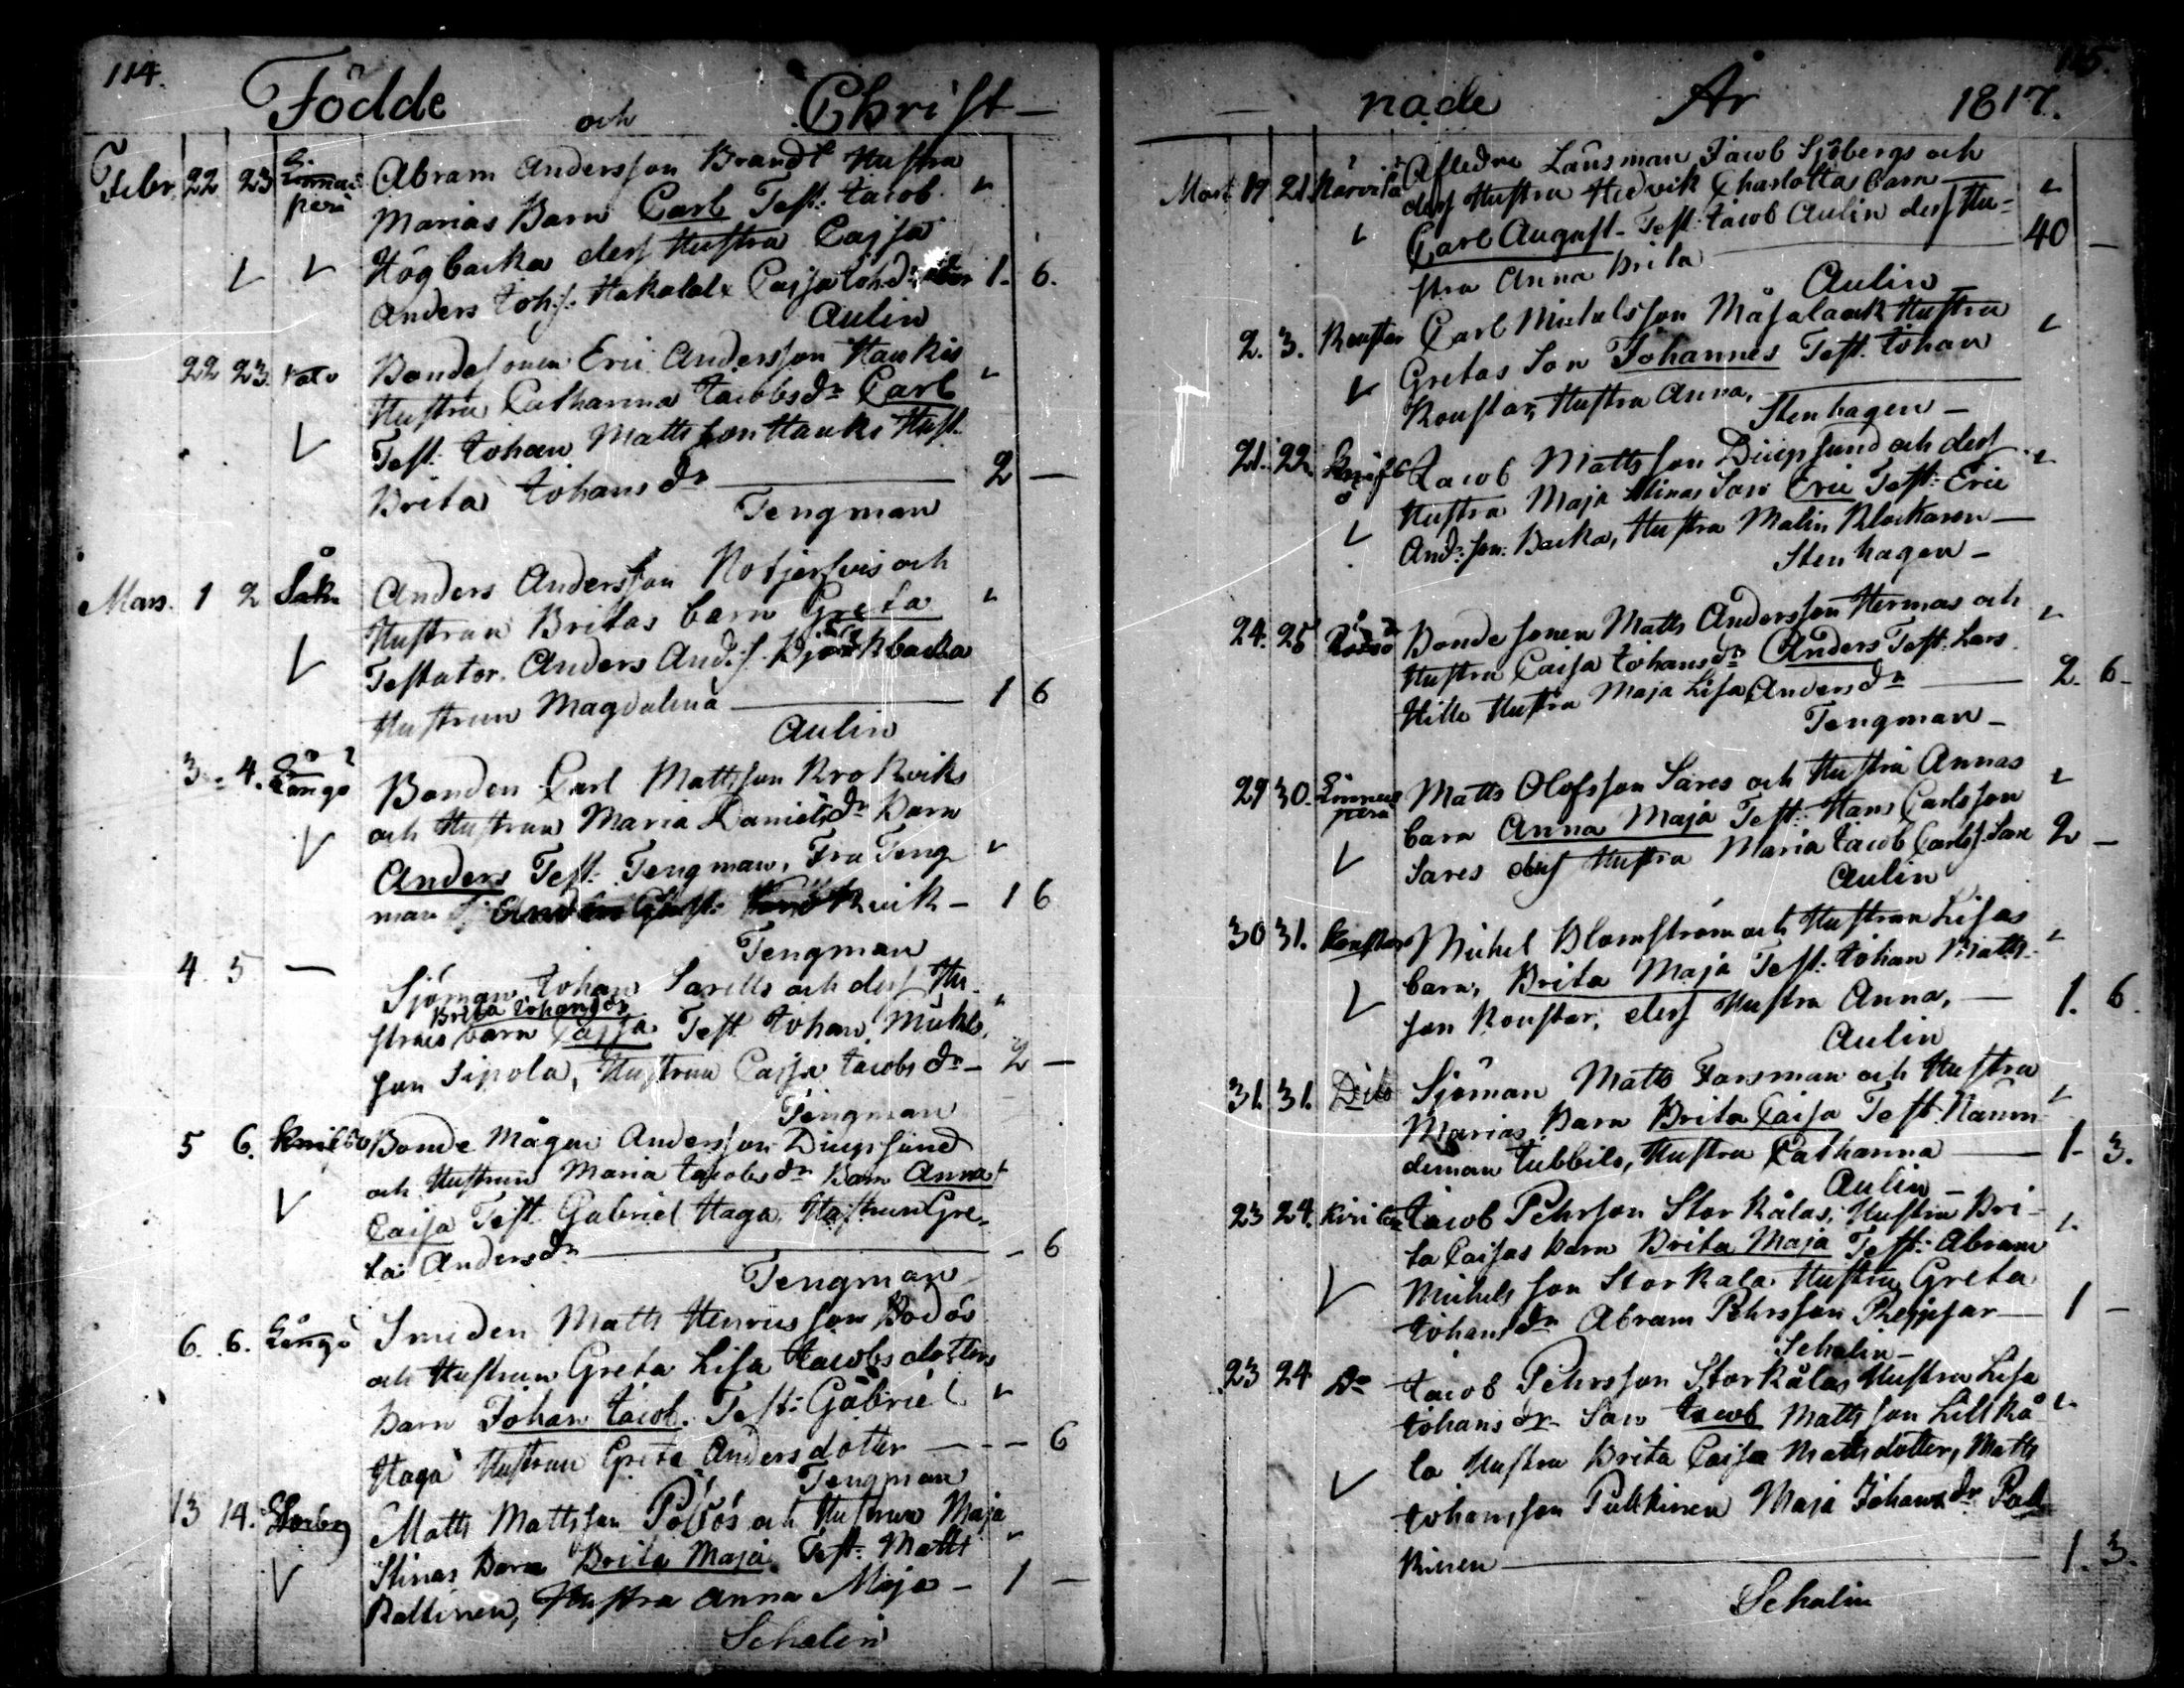 114.
Födde och Christ-
Febr. 22 23 Linnas
peri
Abram Andersson Brandt Hustra
Marias Barn Carl Test: Jacob
Högbacka dess Hustra Cajsa
Anders Joh:s. Hakalax Cajsa Joh:dr 1. 6.
Aulin
22 23.
Bondesonen Eric Andersson Haukis
Hustru Catharina Jacobsdr Carl
Test: Johan Mattsson Hauks Hust.
Brita Johansdr 2 —
Tengman
Mars. 1 2 Såk
Anders Andersson Notjersvis och
Hustrun Britas barn Greta
Testator. Anders And:s. Björkbacka
Hustrun Magdalena 1 6
Aulin
3 4. Långö
Bonden Carl Mattsson Krokviks
och Hustrun Maria Danielsdr Barn
Anders Test: Tengman, Fru Teng
man vik - 1 6
Tengman
4. 5 —
Sjöman Johan Sarells och dess Hu-
Brita Johansdr
struns barn Cajsa Test Johan Michels
son Sipola, Hustrun Cajsa Jacobsdr - 2 —
Tengman
5 6.
Bonde Mågen Andersson Diupsund
och Hustrun Maria Jacobsdr Barn Anna
Caisa Test. Gabriel Haga, Hustrun Gre-
ta Andersdr - 6
Tengman
6. 6. Långö
Smeden Matts Henricsson Bodös
och Hustrun Greta Lisa Jacobsdotters
Barn Johan Jacob. Test: Gabriel
Haga Hustrun Greta Andersdotter — - - 6
Tengman
13 14. Storby
Matts Mattsson Pörös och Hustrun Maja
Stinas Barn Brita Maja Test: Matts
Kaltinen, Hustra Anna Maja - 1 —
Schalin
115.
nade År 1817.
Mart 19 21. Karvila
Afledne Länsman Jacob Sjöbergs och
dess Hustru Hedvik Charlotta barn
Carl August - Test: Jacob Aulin dess Hu-
stra Anna Brita 40 —
Aulin
2. 3. Roustar
Carl Michelsson Måsalack Hustra
Gretas Son Johannes Test. Johan
Roustar, Hustra Anna,
Stenhagen —
21. 22.
Jacob Mattsson Diupsund och dess
Hustra Maja Stinas Son Eric Test: Eric
And:son. Backa, Hustra Malin Klockaren —
Stenhagen —
24. 25 Rödsö
Bondesonen Matts Andersson Hermas och
Hustra Caisa Johansdr Anders Test: Lars
Hille Hustra Maja Lisa Andersdr 2. 6 -
Tengman —
29 30. Linnus
pera
Matts Olofsson Sares och Hustra Annas
barn Anna Maja Test: Hans Carlsson
Sares dess Hustra Maria Jacob Carls:s. Sare 2 —
Aulin
30 31. Roustar
Michel Blomström och Hustrun Lisas
barn, Brita Maja Test: Johan Matts
son Roustar, dess Hustra Anna, — 1. 6.
Aulin
31. 31. Dito
Sjöman Matts Forsman och Hustra
Marias Barn Brita Caisa Test. Näm
deman Jubbils, Hustra Catharina — 1 - 3.
Aulin —
23 24.
Jacob Pehrsson Storkålas, Hustru Bri-
ta Caisas barn Brita Maja Test: Abram
Michelsson Storkåla Hustru Greta
Johansdr Abram Pehrsson — 1 —
Schalin —
23 24 Do
Jacob Pehrsson Storkålas Hustra Lisa
Johansdr Son Jacob Mattsson Lillkå
la Hustra Brita Caisa Mattsdotter, Matts
Johansson Pulkkinen Maja Johansdr Pulk
kinen 1. 3.
Schalin